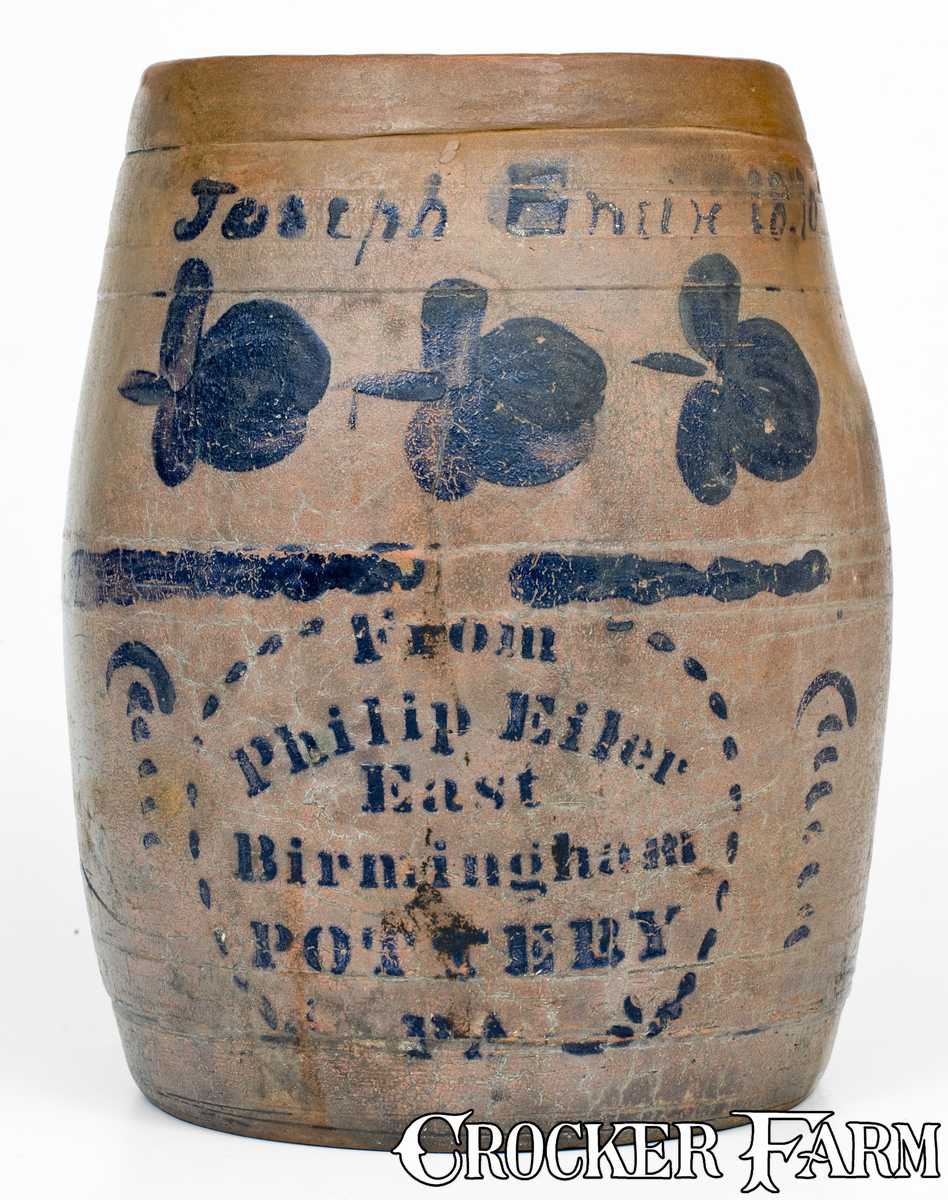 Joseph
From
Philip Eiler
East
Birmingham
POTTERY
PA
CROCKER FARM